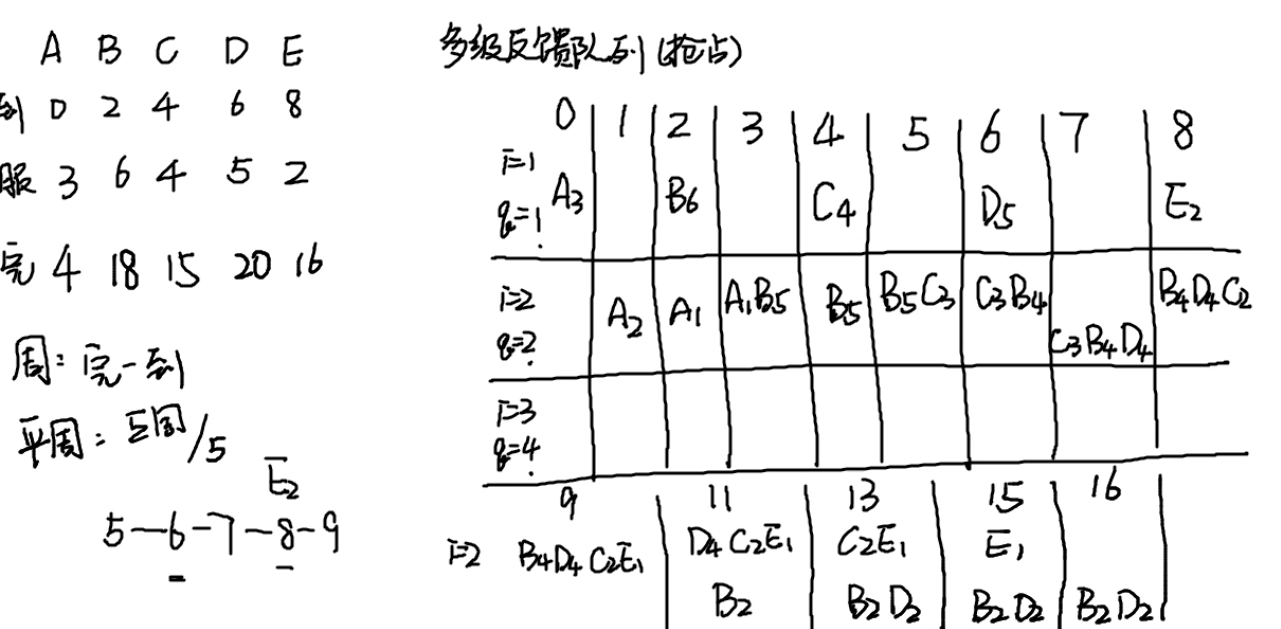 A B C D E
到 0 2 4 6 8
服 3 6 4 5 2
完 4 18 15 20 16
周: 完-到
平周: Σ周/5
E2
5-6-7-8-9
多级反馈队列(抢占)
0 1 2 3 4 5 6 7 8
i=1
q=1
A3 B6 C4 D5 E2
i=2
q=2
A2 A1 A1B5 B5 B5C3 C3B4 C3B4D4 B4D4C2
i=3
q=4
9 11 13 15 16
i=2 B4D4C2E1 D4C2E1 C2E1 E1
B2 B2D2 B2D2 B2D2